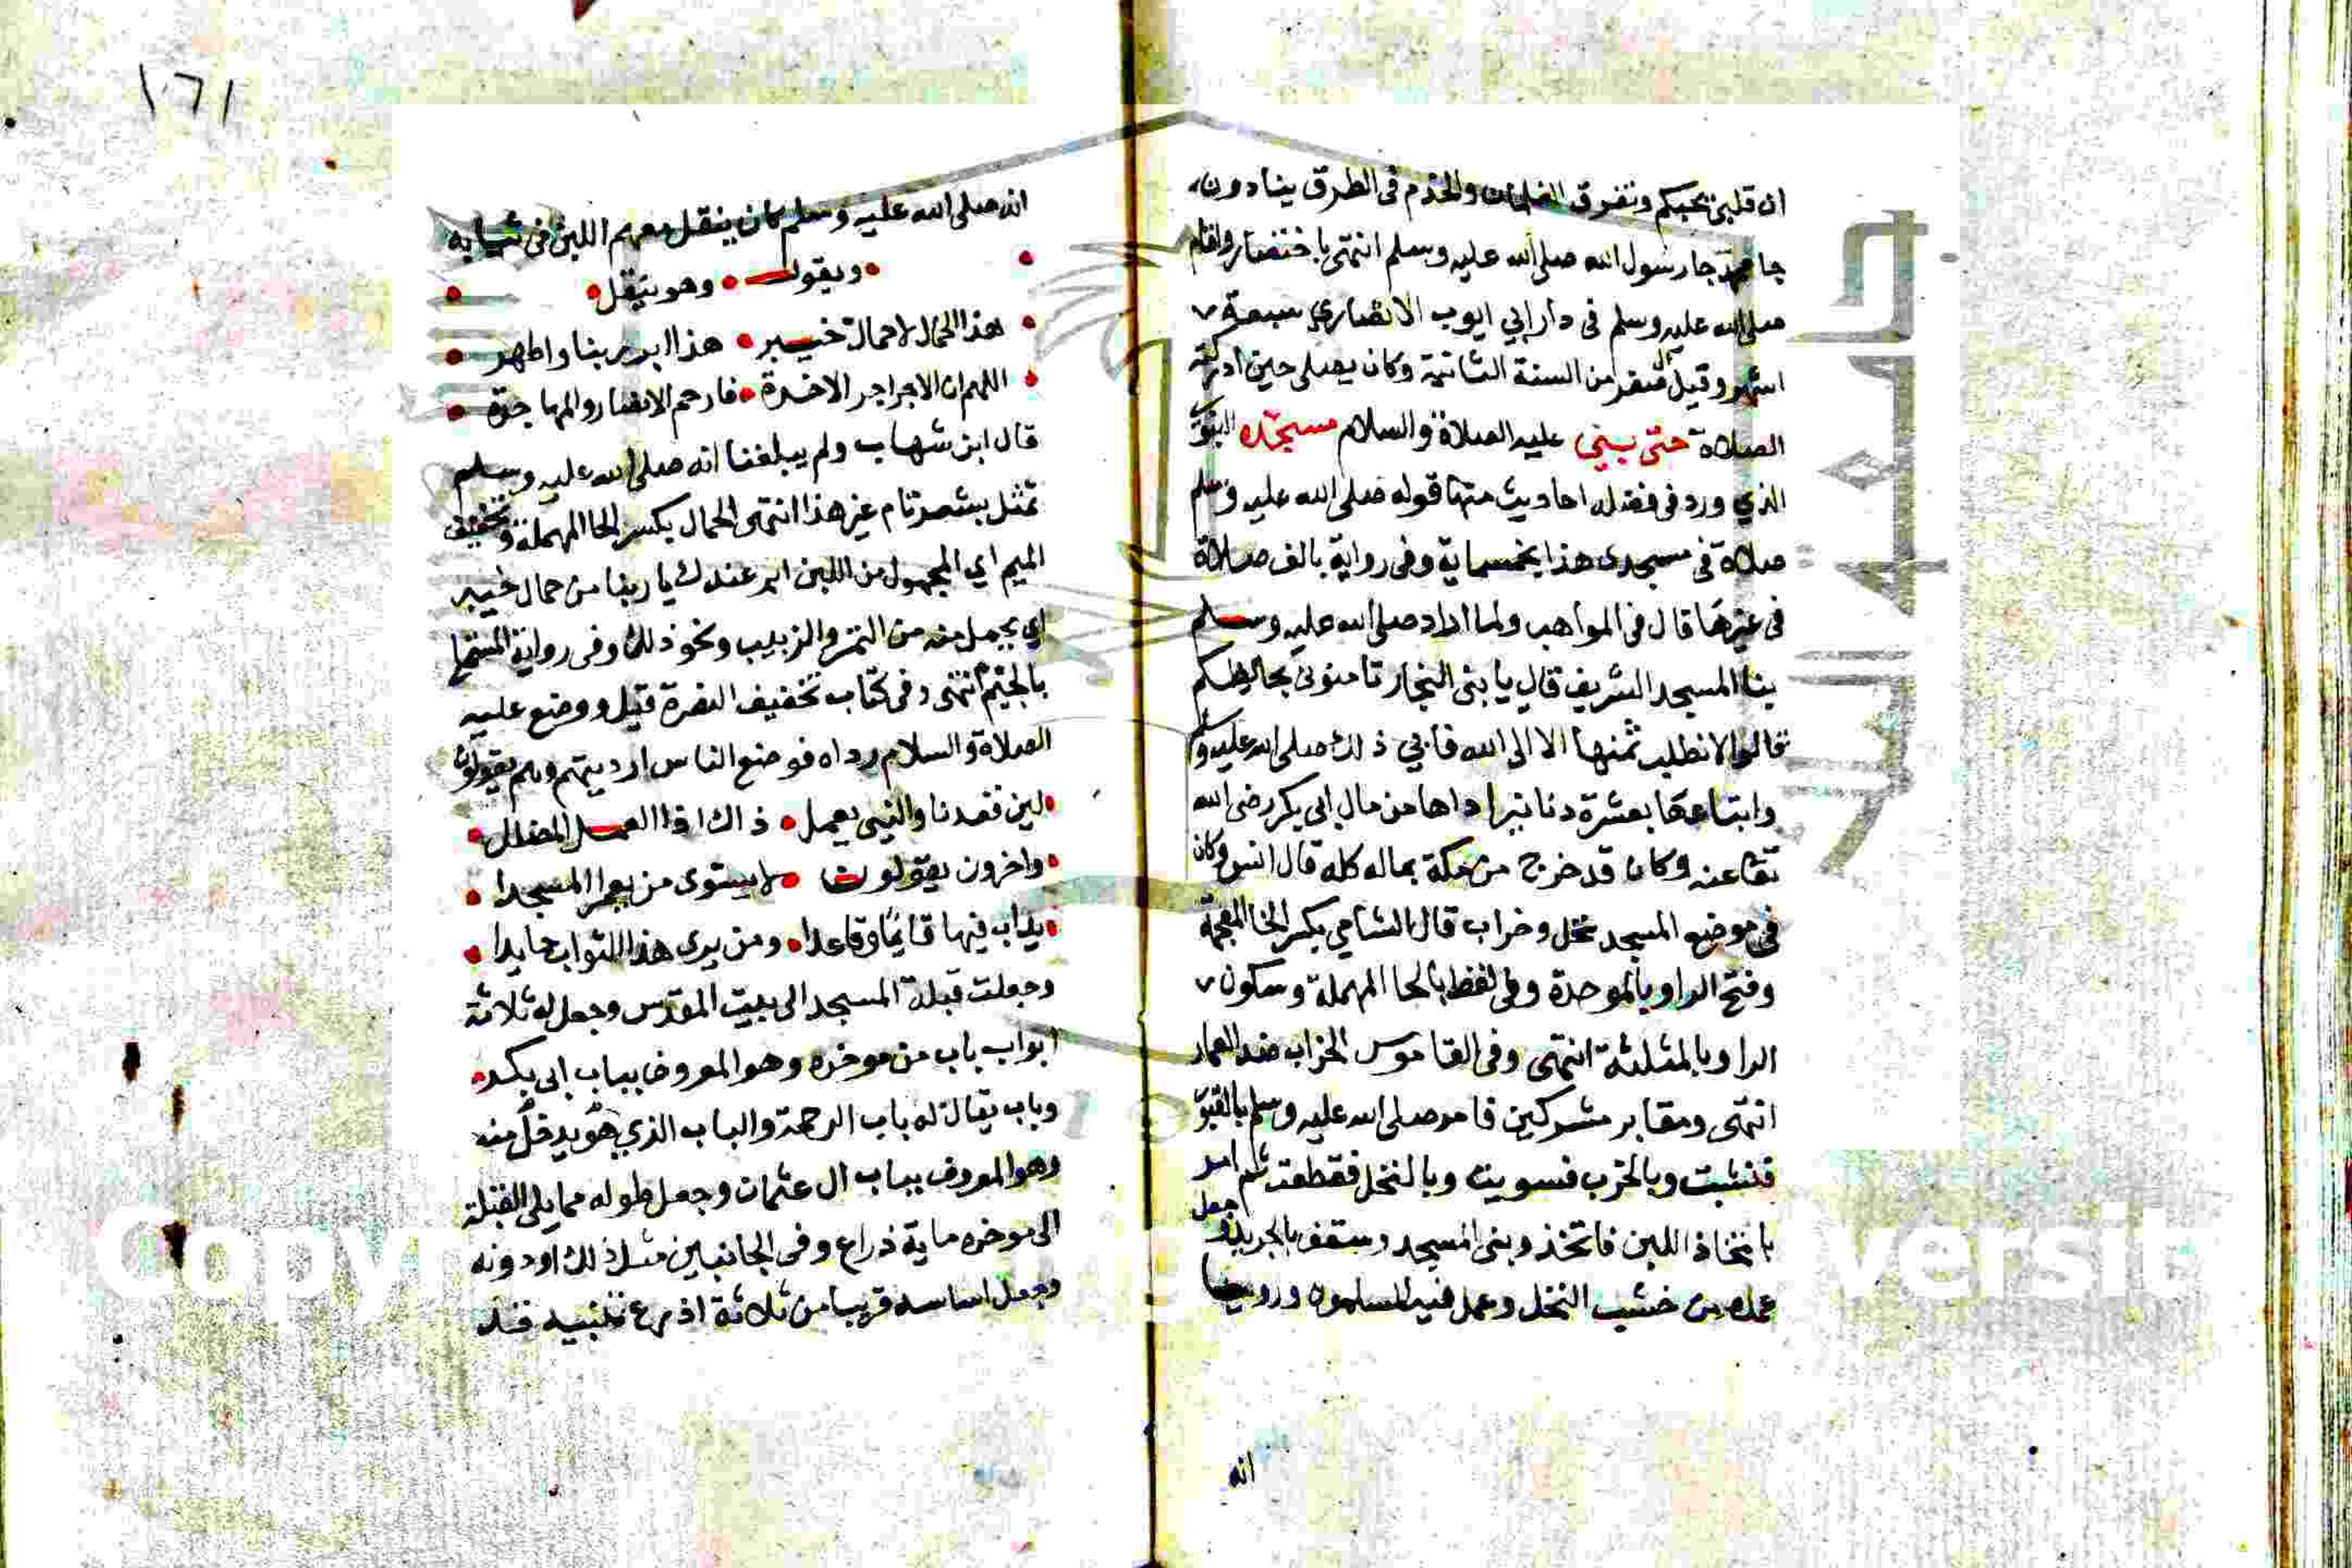 ان قلبي يحبكم وتفرق الغلمان والخدم في الطرق ينادون
جا محمد جا رسول الله صلى الله عليه وسلم انتهى باختصار واقام
صلى الله عليه وسلم في دار ابي ايوب الانصاري سبعة
اشهر وقيل الى صفر من السنة الثانية وكان يصلي حين ادركته
الصلاة حتى بني عليه الصلاة والسلام مسجده
الذي ورد في فضله احاديث منها قوله صلى الله عليه وسلم
صلاة في مسجدي هذا بخمسماية وفي رواية بالف صلاة
في غيرها قال في المواهب ولما اراد صلى الله عليه وسلم
بنا المسجد الشريف قال يا بني النجار ثامنوني بحايطكم
قالوا لا نطلب ثمنها الا الى الله فابي ذلك صلى الله عليه وسلم
وابتاعها بعشرة دنانير اداها من مال ابي بكر رضي الله
تعا عنه وكان قد خرج من مكة بماله كله قال انس وكان
في موضع المسجد نخل وخراب قال الشامي بكسر الخا المعجمة
وفتح الرا وبالموحدة وفي لفظ بالحا المهملة وسكون
الرا وبالمثلثة انتهى وفي القاموس الخراب ضد العمار
انتهى ومقابر مشركين فامر صلى الله عليه وسلم بالقبور
فنبشت وبالخرب فسويت وبالنخل فقطعت ثم امر
باتخاذ اللبن فاتخذ وبنى المسجد وسقف بالجريد وجعل
عمده من خشب النخل وعمل فيه المسلمون وروينا
انه
١٦١
انه صلى الله عليه وسلم كان ينقل معهم اللبن في ثيابه
ويقول وهو ينقل
هذا الحمال لا حمال خيبر هذا ابر ربنا واطهر
اللهم ان الاجر اجر الاخرة فارحم الانصار والمهاجرة
قال ابن شهاب ولم يبلغنا انه صلى الله عليه وسلم
تمثل بشعر تام غير هذا انتهى الحمال بكسر الحا المهملة وتخفيف
الميم اي المحمول من اللبن ابر عندك يا ربنا من حمال خيبر
اي يحمل منه من التمر والزبيب ونحو ذلك وفي رواية
بالجيم انتهى وفي كتاب تخفيف النصرة قيل ووضع عليه
الصلاة والسلام رداه فوضع الناس ارديتهم وهم يقولون
لين قعدنا والنبي يعمل ذاك اذا العمل المضلل
واخرون يقولون لا يستوى من يعمر المسجدا
يداب فيها قايما وقاعدا ومن يرى هذا التواب حايدا
وجعلت قبلة المسجد الى بيت المقدس وجعل له ثلاثة
ابواب باب من موخره وهو المعروف بباب ابي بكر
وباب يقال له باب الرحمة والباب الذي هو يدخل منه
وهو المعروف بباب ال عثمان وجعل طوله مما يلي القبلة
الى موخره ماية ذراع وفي الجانبين مثل ذلك او دونه
وجعل اساسه قريبا من ثلاثة اذرع